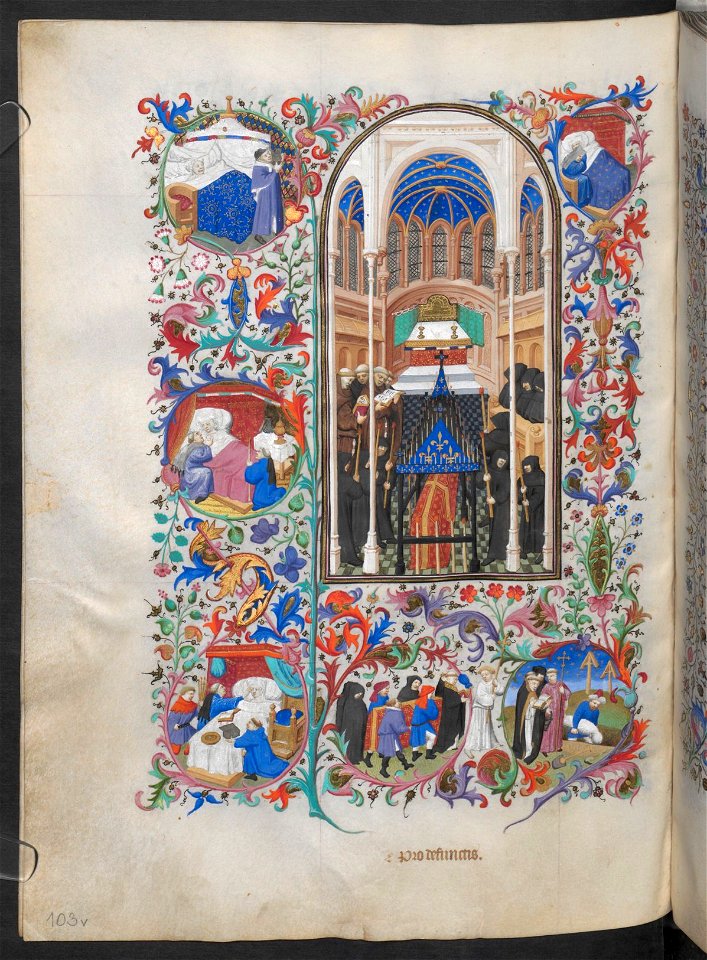 Pro defunctis.
103v